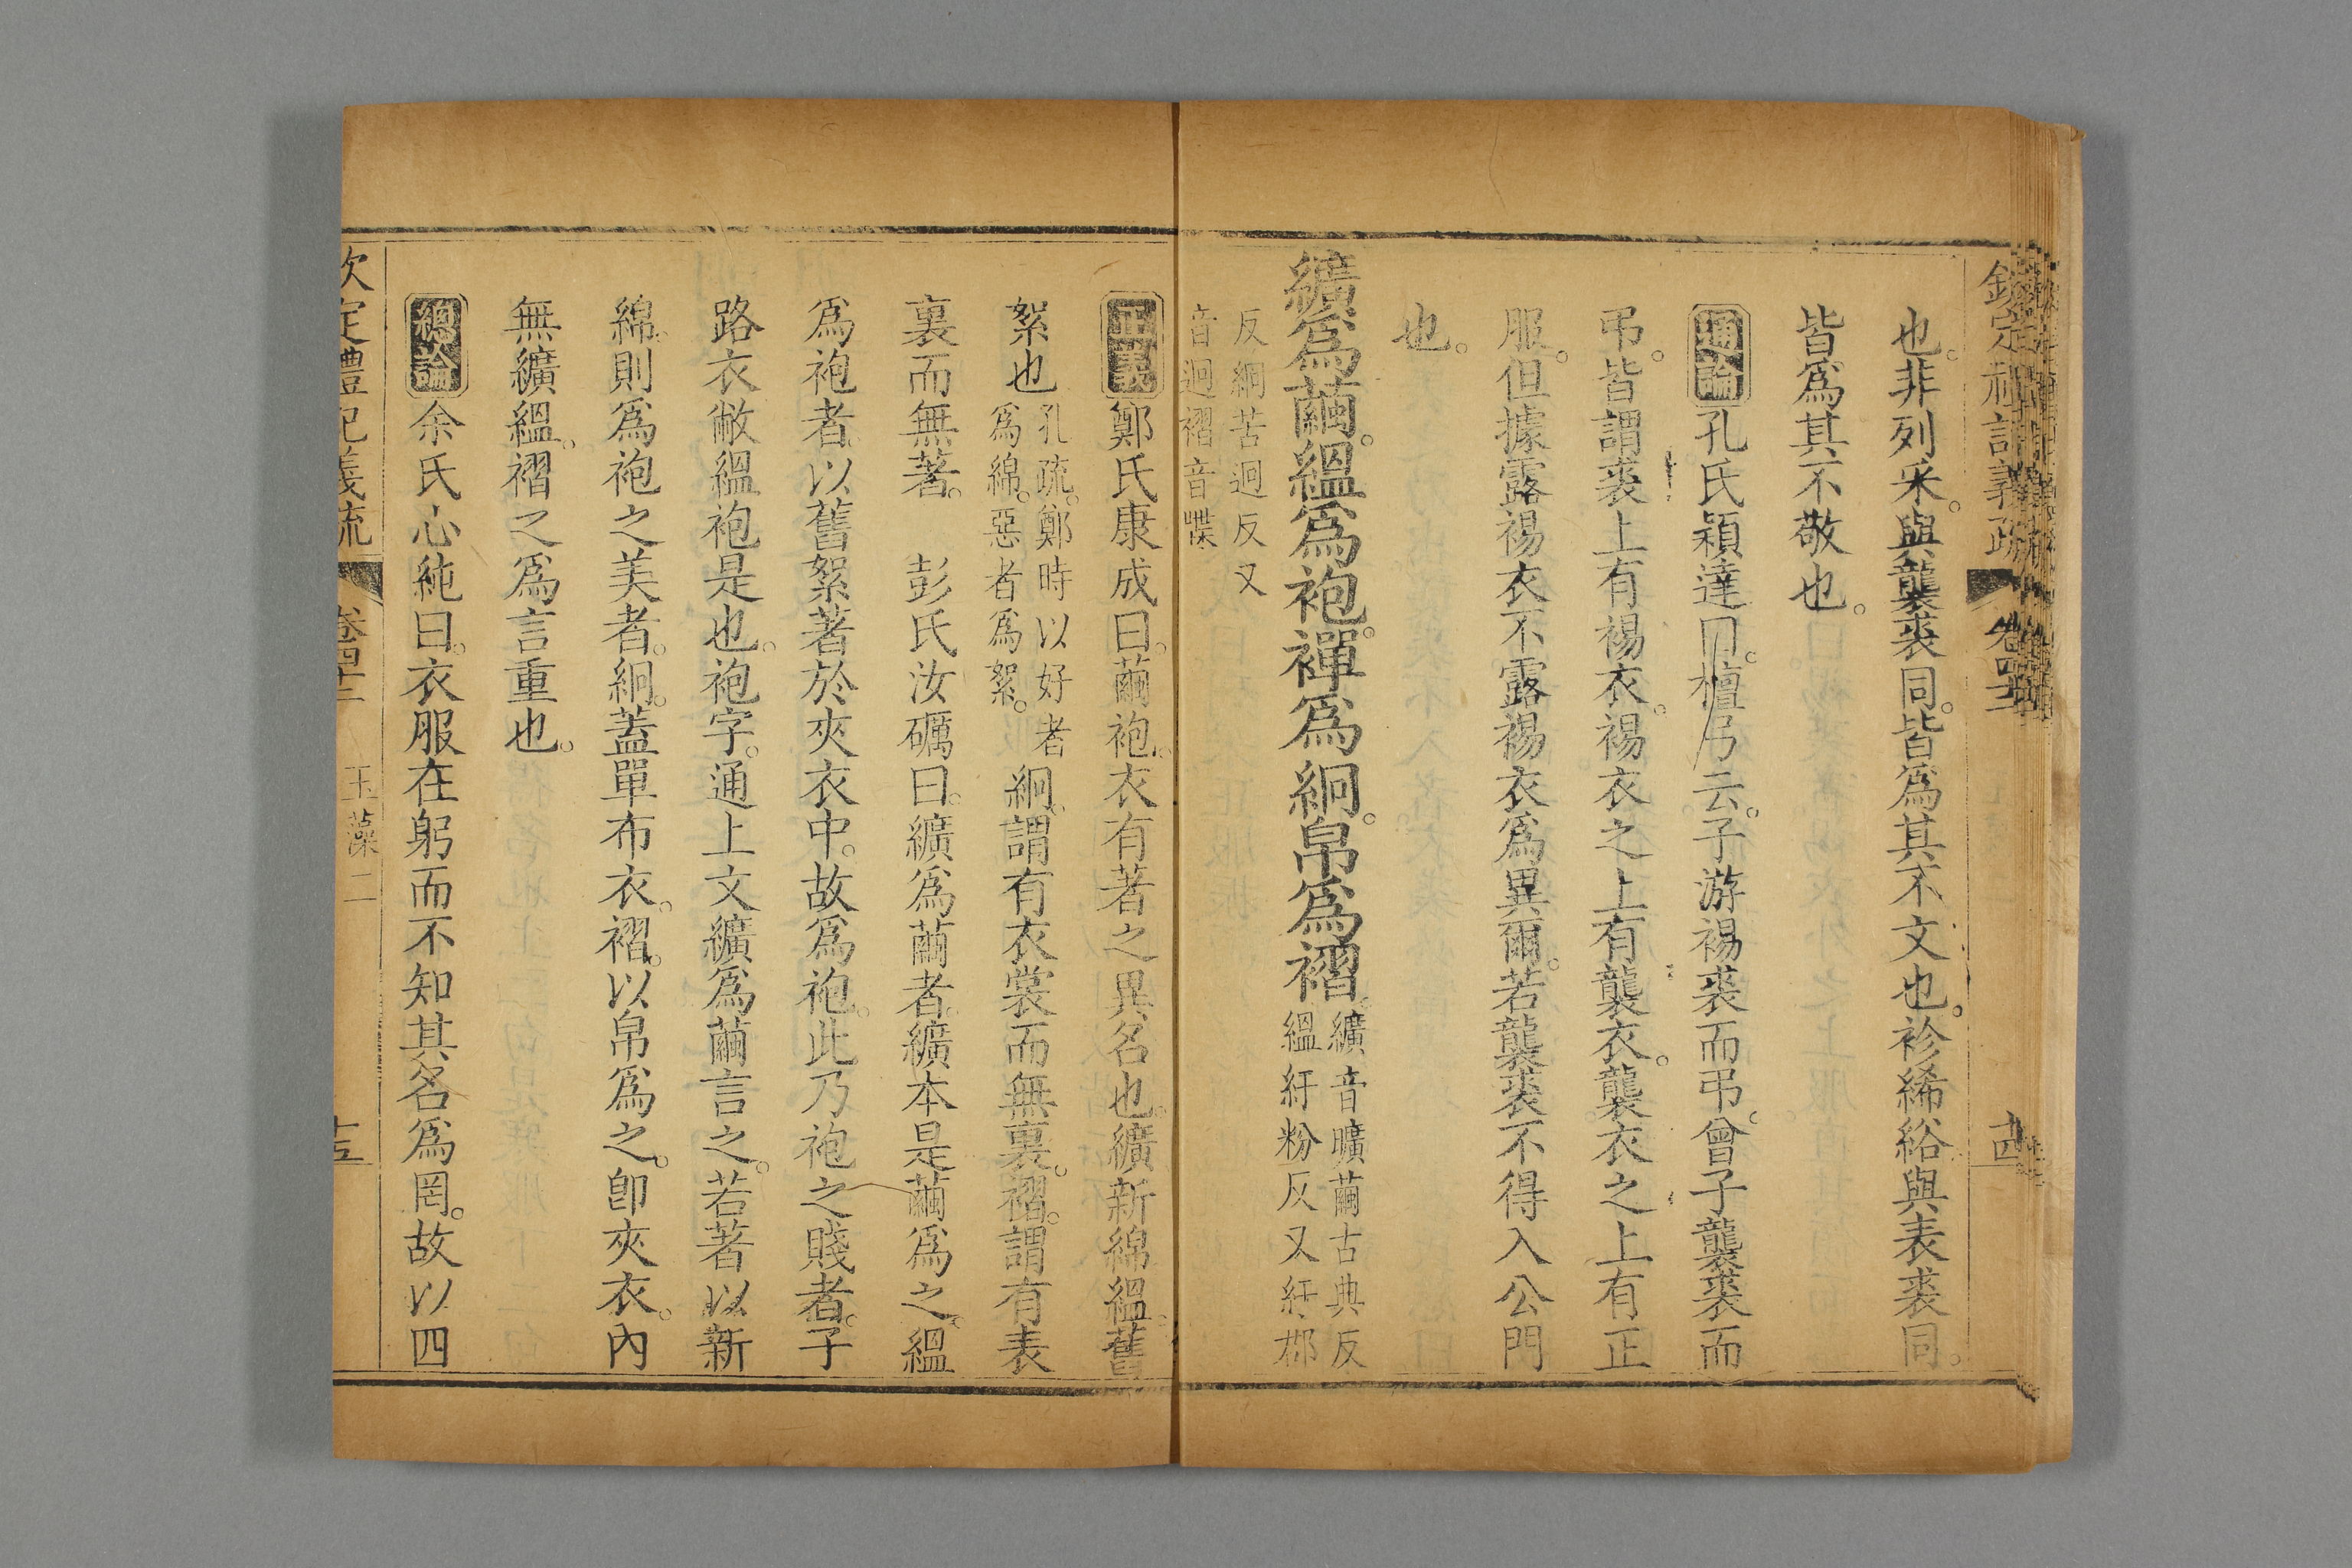 欽定禮記義疏 卷四十二 十四
也。非列采。與襲裘同。皆爲其不文也。袗絺綌與表裘同。
皆爲其不敬也。
通論 孔氏穎達曰。檀弓云。子游裼裘而弔。曾子襲裘而
弔。皆謂裘上有裼衣。裼衣之上有襲衣。襲衣之上有正
服。但據露裼衣不露裼衣爲異爾。若襲裘不得入公門
也。
纊爲繭。縕爲袍。襌爲絅。帛爲褶。纊音曠繭古典反縕紆粉反又紆郡
反絅苦迥反又音迥褶音牒
正義 鄭氏康成曰。繭袍。衣有著之異名也。纊新綿縕。舊
絮也孔疏。鄭時以好者爲綿。惡者爲絮。絅。謂有衣裳而無裏。褶。謂有表
裏而無著。 彭氏汝礪曰。纊爲繭者。纊本是繭爲之。縕
爲袍者。以舊絮著於夾衣中。故爲袍。此乃袍之賤者。子
路衣敝縕袍是也。袍字。通上文纊爲繭言之。若著以新
綿。則爲袍之美者。絅。蓋單布衣。褶。以帛爲之。卽夾衣。內
無纊縕。褶之爲言重也。
總論 余氏心純曰。衣服在躬而不知其名爲罔。故以四
欽定禮記義疏 卷四十二 玉藻二 十五